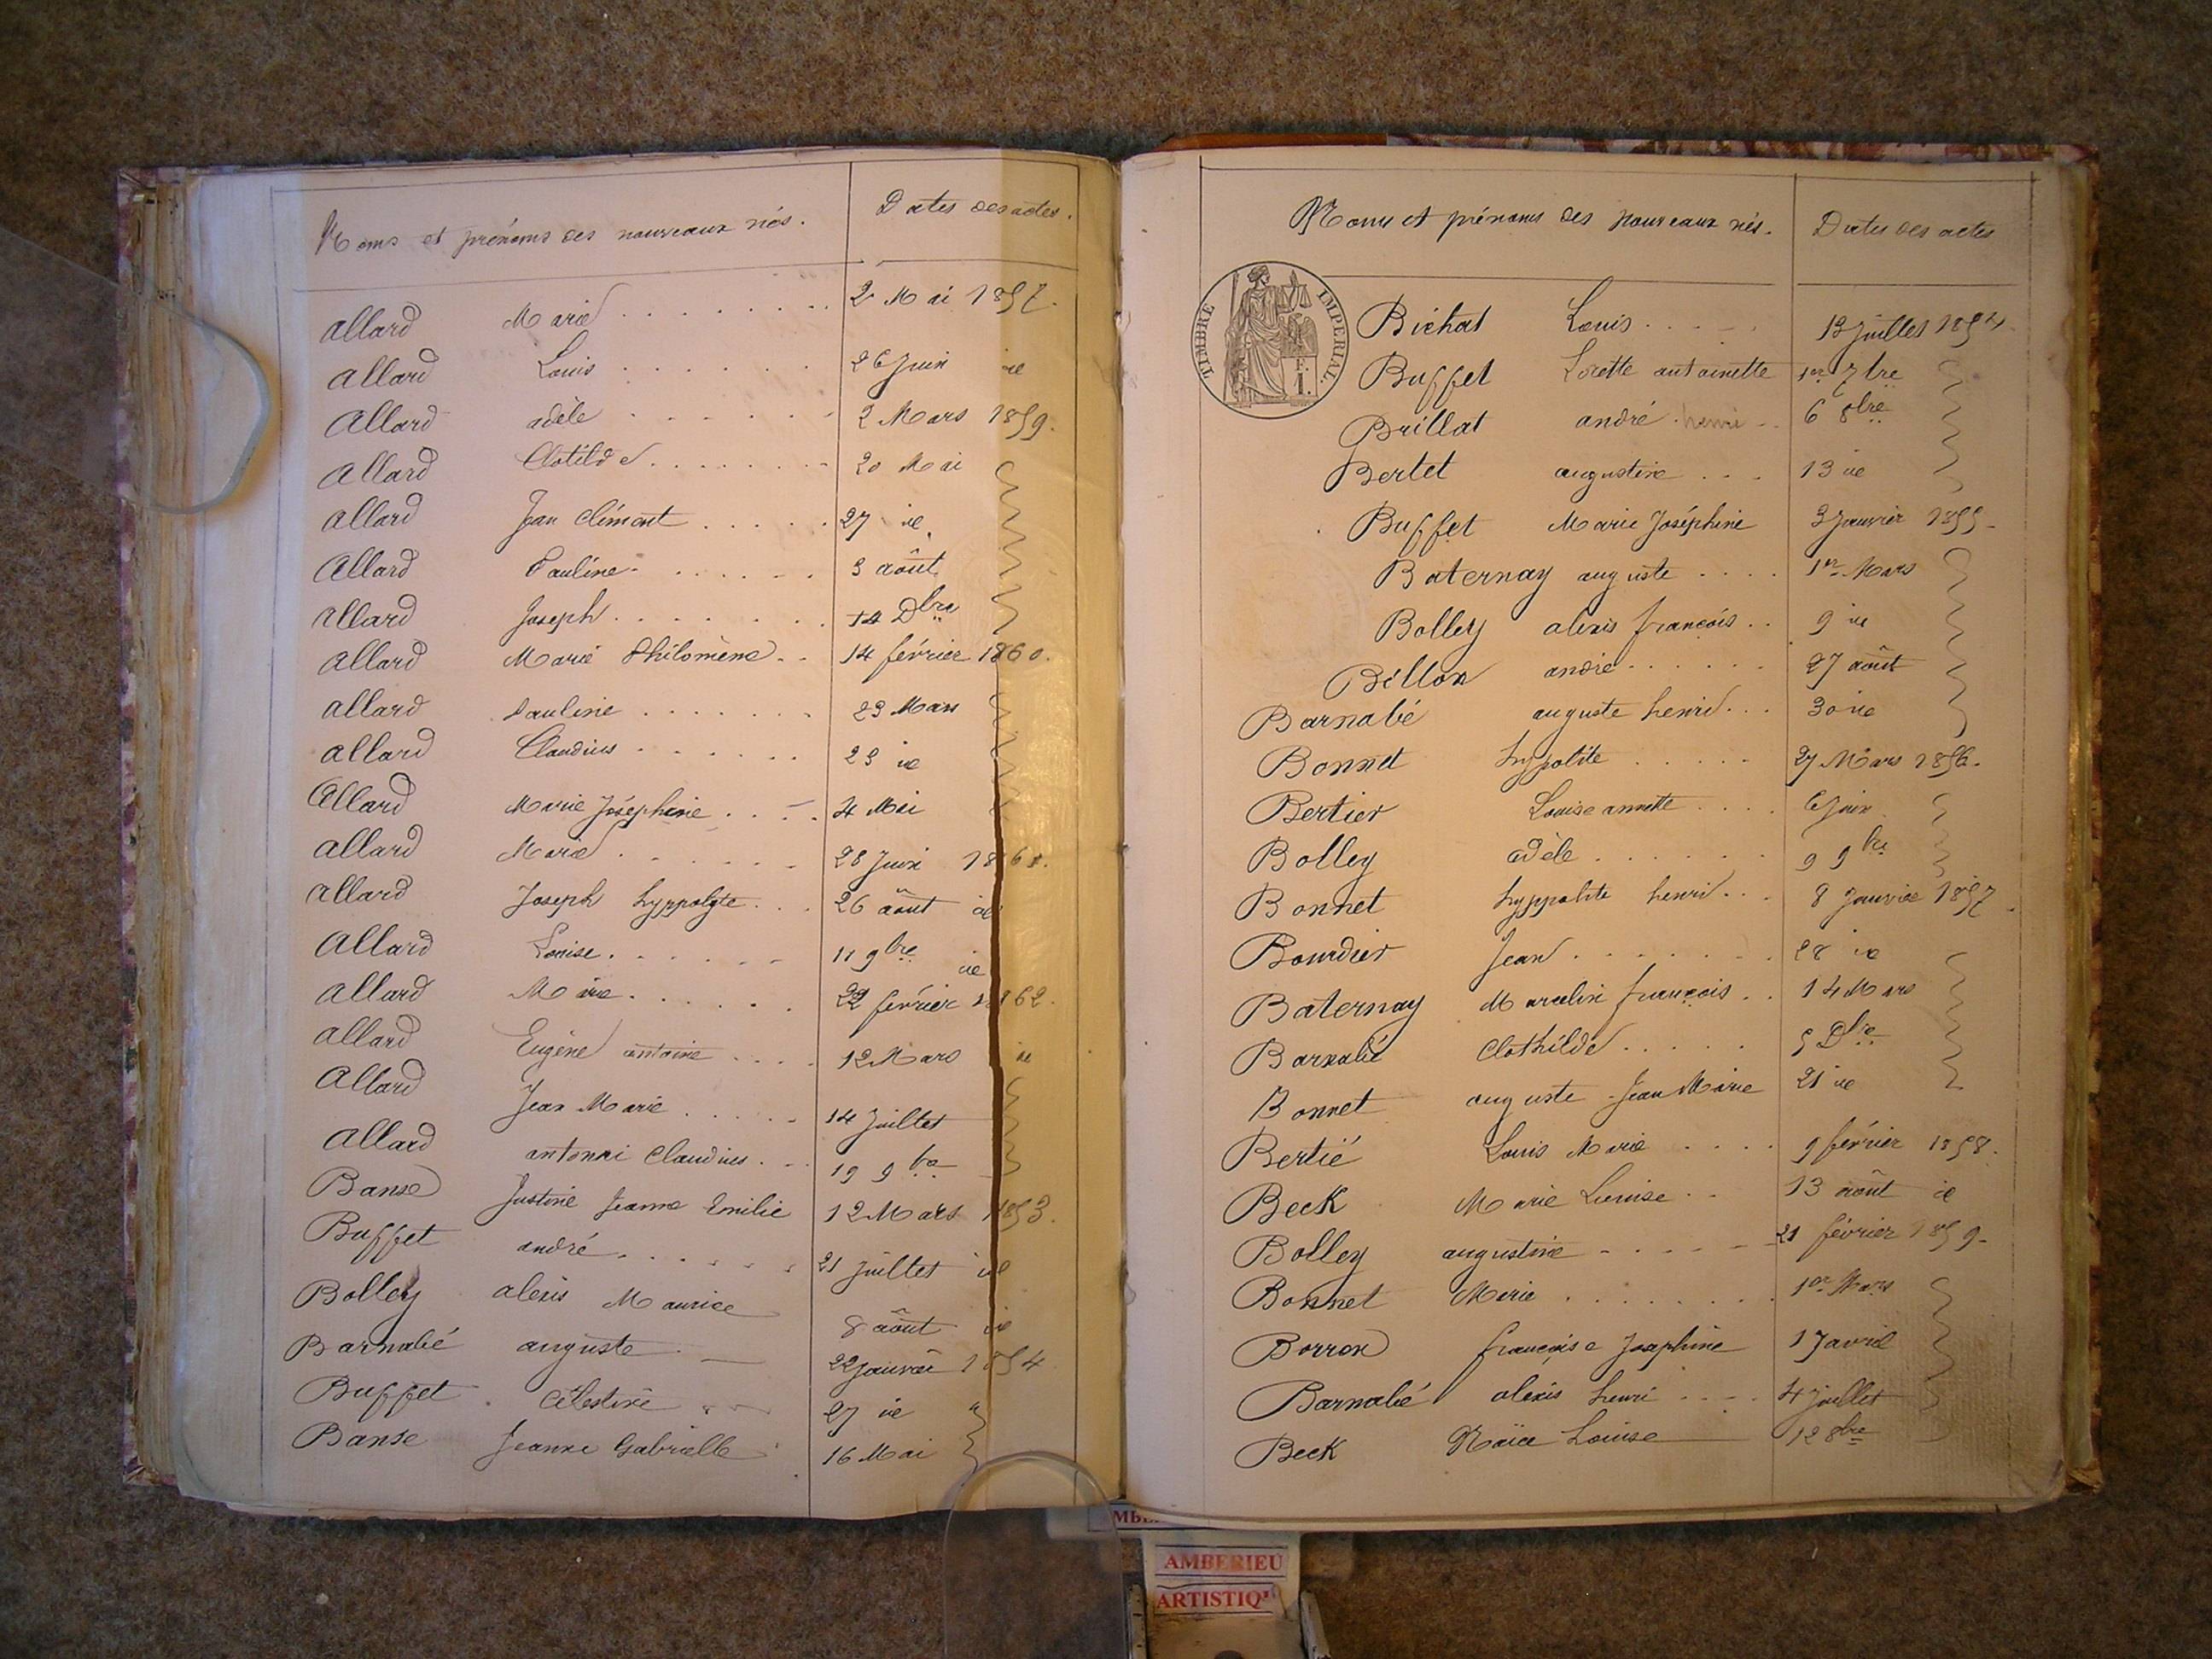 Noms et prénoms des nouveaux nés. Dates des actes.
Allard Marie 2 Mai 1857.
Allard Louis 26 Juin id
Allard adèle 2 Mars 1859.
Allard Clotilde 20 Mai
Allard Jean Clément 27 id
Allard Pauline 3 août
Allard Joseph 14 Dbre
Allard Marie Philomène 14 février 1860.
Allard Pauline 23 Mars
Allard Claudius 23 id
Allard Marie Joséphine 4 Mai
Allard Marie 28 Juin 1861.
Allard Joseph hyppolyte 26 août id
Allard Louise 11 9bre id
Allard Marie 22 février 1862.
Allard Eugène antoine 12 Mars id
Allard Jean Marie 14 Juillet
Allard Claudius 19 9bre
Banse Justine Jeanne Emilie 12 Mars 1853.
Buffet andré 21 juillet id
Bolley alexis Maurice 8 août id
Barnabé auguste 22 janvier 1854
Buffet Célestine 27 id "
Banse Jeanne Gabrielle 16 Mai
Noms et prénoms des nouveaux nés. Dates des actes
TIMBRE IMPERIAL.
Bichat Louis juillet 1854
Buffet antoinette 1er 7bre
Brillat andré henri 6 8bre
Bertet augustine 13 id
Buffet Marie Joséphine 3 Janvier 1855
Baternay auguste 1er Mars
Bolley alexis françois 9 id
Billon andré 27 août
Barnabé auguste henri 30 id
Bonnet hyppolite 27 Mars 1856.
Bertier Louise annette 6 Juin
Bolley adèle 9 9bre
Bonnet hyppolite henri 8 Janvier 1857
Bourdier Jean 28 id
Baternay Marcelin françois 14 Mars
Barnabé Clothilde 5 Dbre
Bonnet auguste Jean Marie 21 id
Bertié Louis Marie 9 février 1858.
Beck Marie Louise 13 août id
Bolley augustine 21 février 1859
Bonnet Marie 1er Mars
Borron françoise Josephine 17 avril
Barnabé alexis henri 4 Juillet
Beck Louise 12 8bre
AMBERIEU
ARTISTIQ